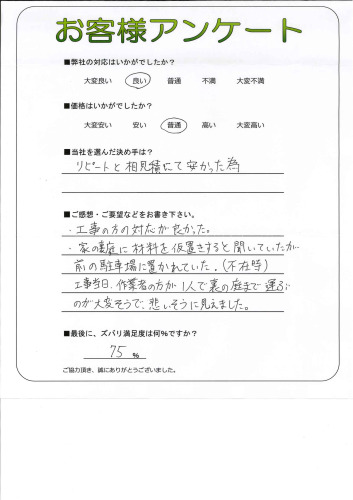 お客様アンケート
■弊社の対応はいかがでしたか？
大変良い　良い　普通　不満　大変不満
■価格はいかがでしたか？
大変安い　安い　普通　高い　大変高い
■当社を選んだ決め手は？
リピートと相見積にて安かった為
■ご感想・ご要望などをお書き下さい。
・工事の方の対応が良かった。
・家の裏庭に材料を仮置きすると聞いていたが
前の駐車場に置かれていた。(不在時)
工事当日、作業者の方が1人で裏の庭まで運ぶ
のが大変そうで、悲しそうに見えました。
■最後に、ズバリ満足度は何%ですか？
75 %
ご協力頂き、誠にありがとうございました。